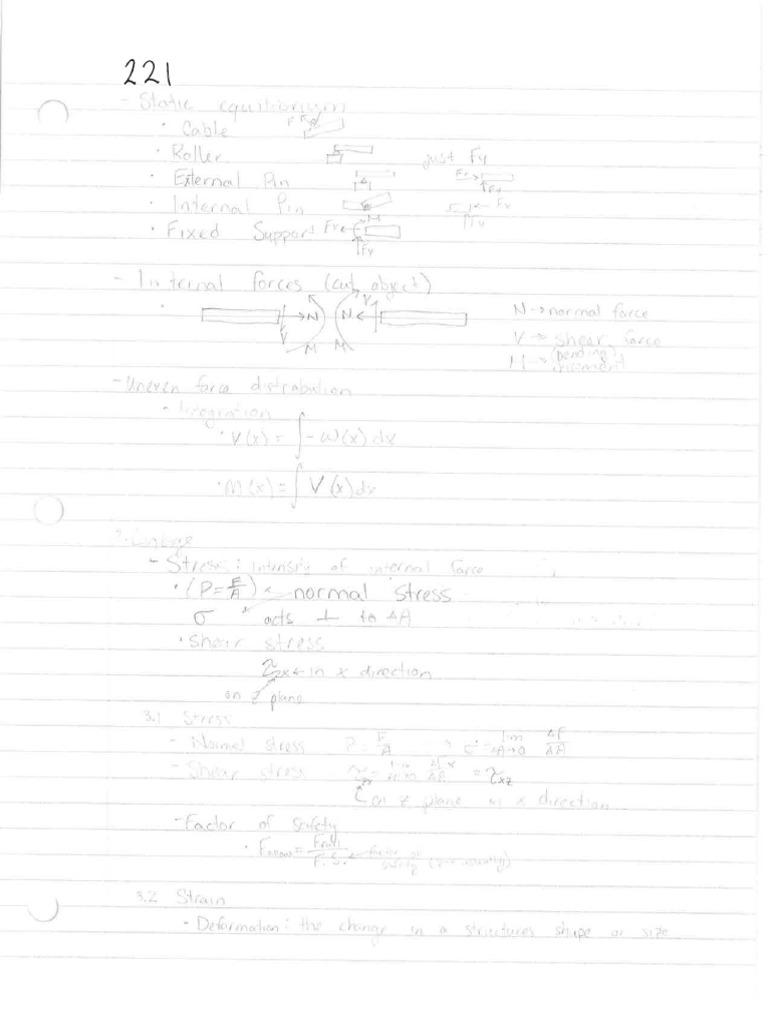 221
- Static equilibrium
· Cable F
· Roller just Fy
· External Pin Fx Fy
· Internal Pin Fx Fy
· Fixed Support Fx M Fy
- Internal forces (cut object)
N V M N V M N → normal force
V → shear force
M → (bending) moment
- Uneven force distrabution
- Integration
· V(x) = ∫ -w(x) dx
· M(x) = ∫ V(x) dx
- Stress: intensity of internal force
· (P = F/A) ← normal stress
σ acts ⊥ to ΔA
· Shear stress
← in x direction
on z plane
3.1 Stress
- Normal stress P = F/A → σ = lim ΔA→0 ΔF/ΔA
- Shear stress τ = lim ΔA→0 ΔFx/ΔA = τxz
on z plane in x direction
- Factor of safety
· Fallow = Ffail/F.S. ← factor of safety
3.2 Strain
- Deformation: the change in a structures shape or size